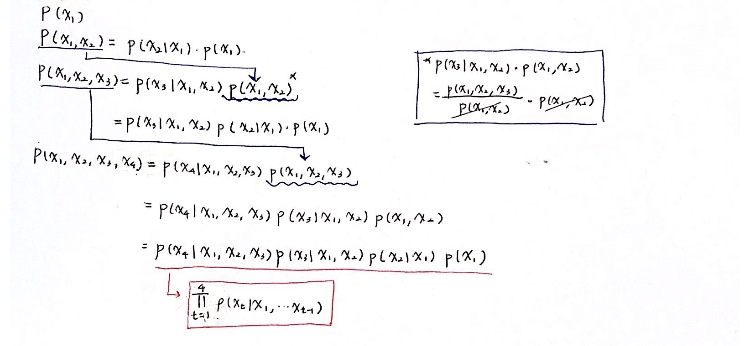 P(x₁)
P(x₁,x₂) = p(x₂|x₁)·p(x₁).
P(x₁,x₂,x₃) = p(x₃|x₁,x₂) p(x₁,x₂)*
= p(x₃|x₁,x₂) p(x₂|x₁)·p(x₁)
P(x₁,x₂,x₃,x₄) = p(x₄|x₁,x₂,x₃) p(x₁,x₂,x₃)
= p(x₄|x₁,x₂,x₃) p(x₃|x₁,x₂) p(x₁,x₂)
= p(x₄|x₁,x₂,x₃) p(x₃|x₁,x₂) p(x₂|x₁) p(x₁)
4
∏ p(xₜ|x₁,⋯xₜ₋₁)
t=1
* p(x₃|x₁,x₂)·p(x₁,x₂)
= p(x₁,x₂,x₃) / p(x₁,x₂) · p(x₁,x₂)